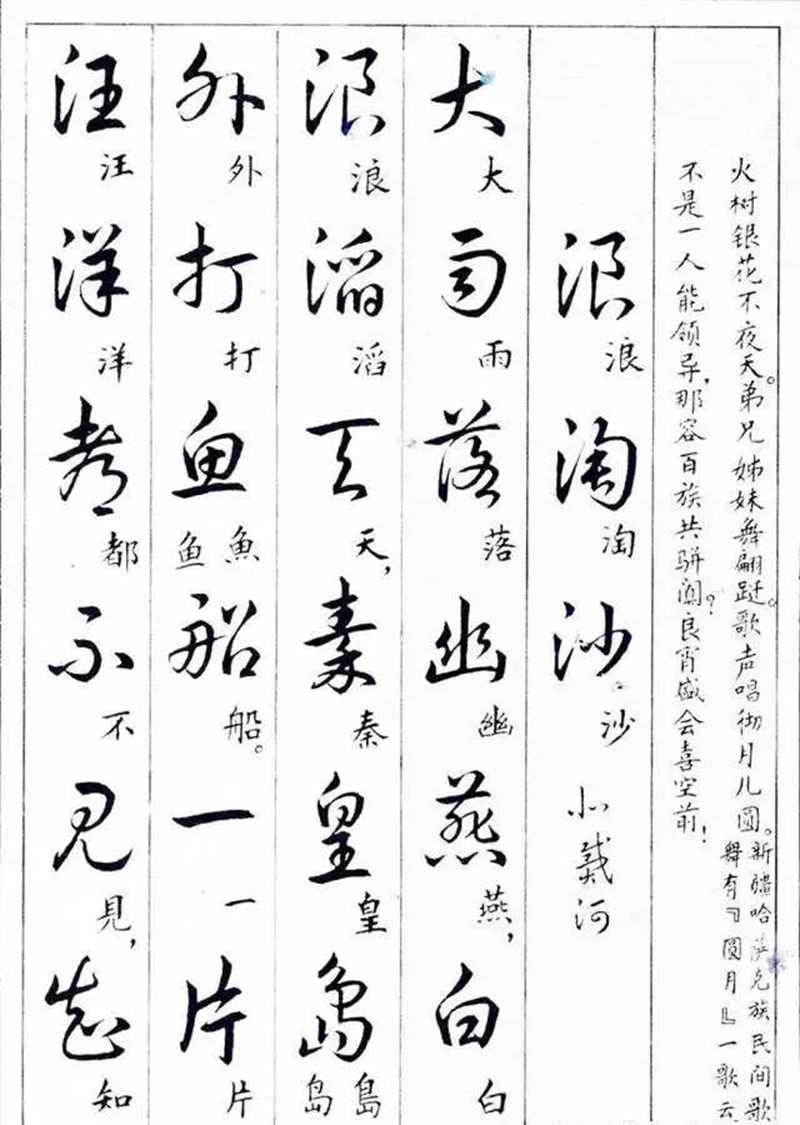 火树银花不夜天。弟兄姊妹舞翩跹。歌声唱彻月儿圆。
新疆哈萨克族民间歌
舞有『圆月』一歌云。
不是一人能领导，那容百族共骈阗？良宵盛会喜空前！
浪淘沙 北戴河
浪淘沙
大雨落幽燕白
大雨落幽燕，白
浪滔天秦皇島
浪滔天，秦皇島岛
外打鱼船一片
外打魚鱼船。一片
汪洋都不见知
汪洋都不見，知